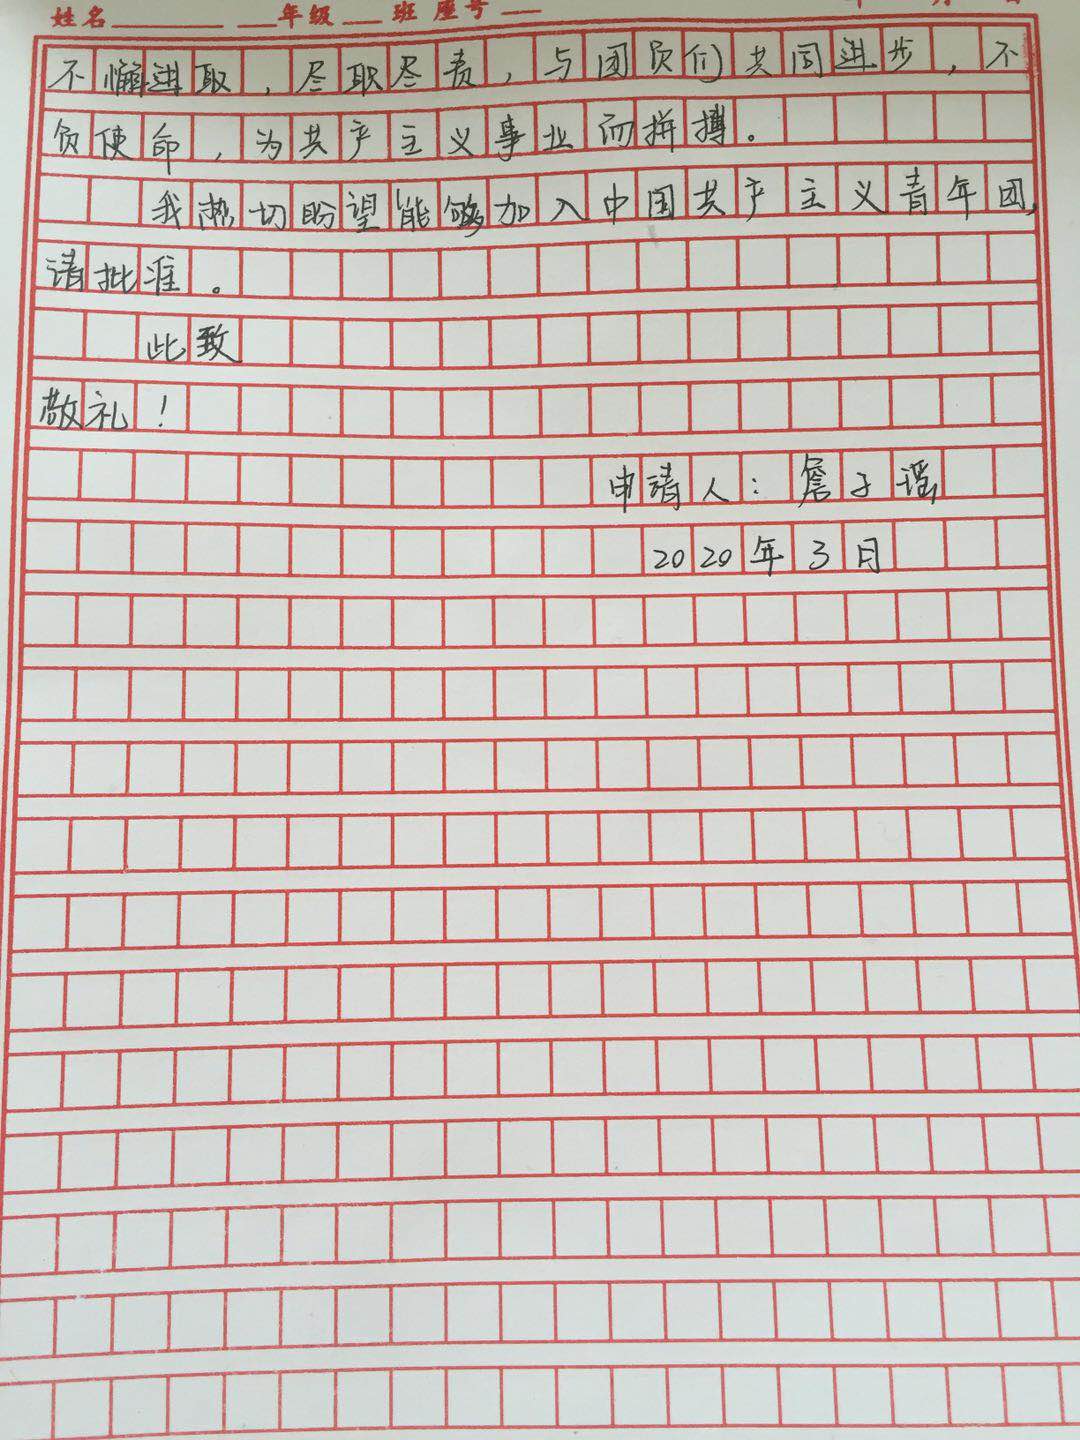 姓名________ ___年级___班 座号___
不懈进取，尽职尽责，与团员们共同进步，不
负使命，为共产主义事业而拼搏。
我热切盼望能够加入中国共产主义青年团，
请批准。
此致
敬礼！
申请人：詹子瑶
2020年3日